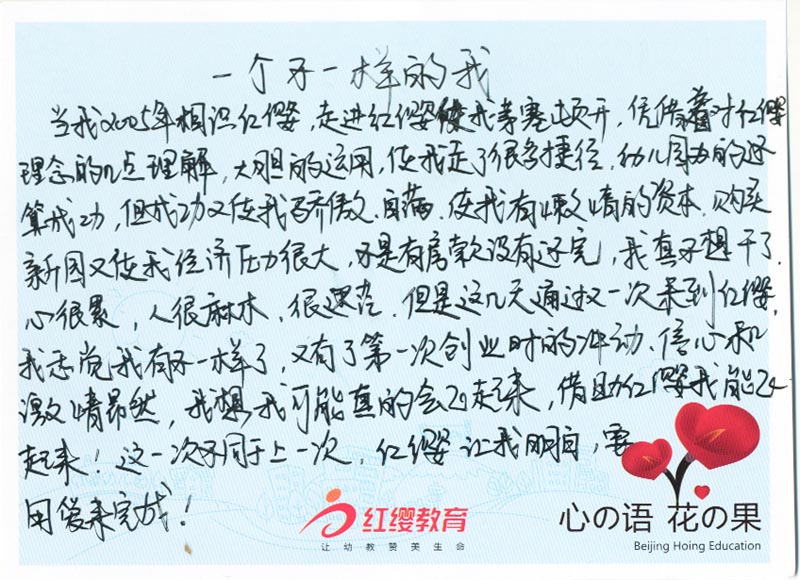 一个不一样的我
当我2005年相识红缨,走进红缨使我茅塞顿开,凭借着对红缨
理念的几点理解,大胆的运用,使我走了很多捷径,幼儿园办的还
算成功,但成功又使我骄傲、自满、使我有懒惰的资本,购买
新园又使我经济压力很大,不是有房款没有还完,我真不想干了.
心很累,人很麻木,很迷茫.但是这几天通过又一次来到红缨,
我感觉我有不一样了,又有了第一次创业时的冲动、信心和
激情昂然,我想我可能真的会飞起来,借助红缨我能飞
起来!这一次不同于上一次,红缨让我明白,要
用爱来完成!
红缨教育
让幼教赞美生命
心の语 花の果
Beijing Hoing Education